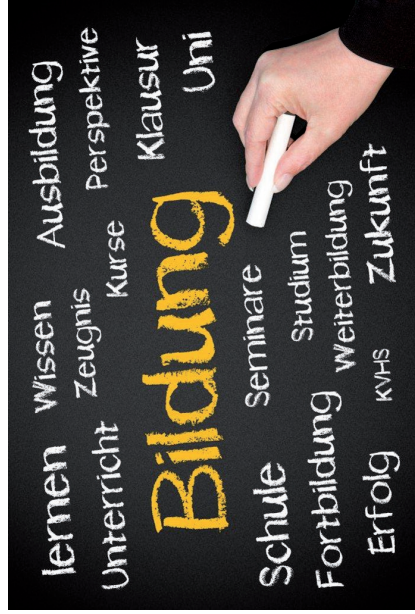 lernen Wissen Ausbildung
Unterricht Zeugnis Perspektive
Kurse Klausur
Uni
Bildung
Schule Seminare
Fortbildung Studium
Weiterbildung
Erfolg KVHS Zukunft